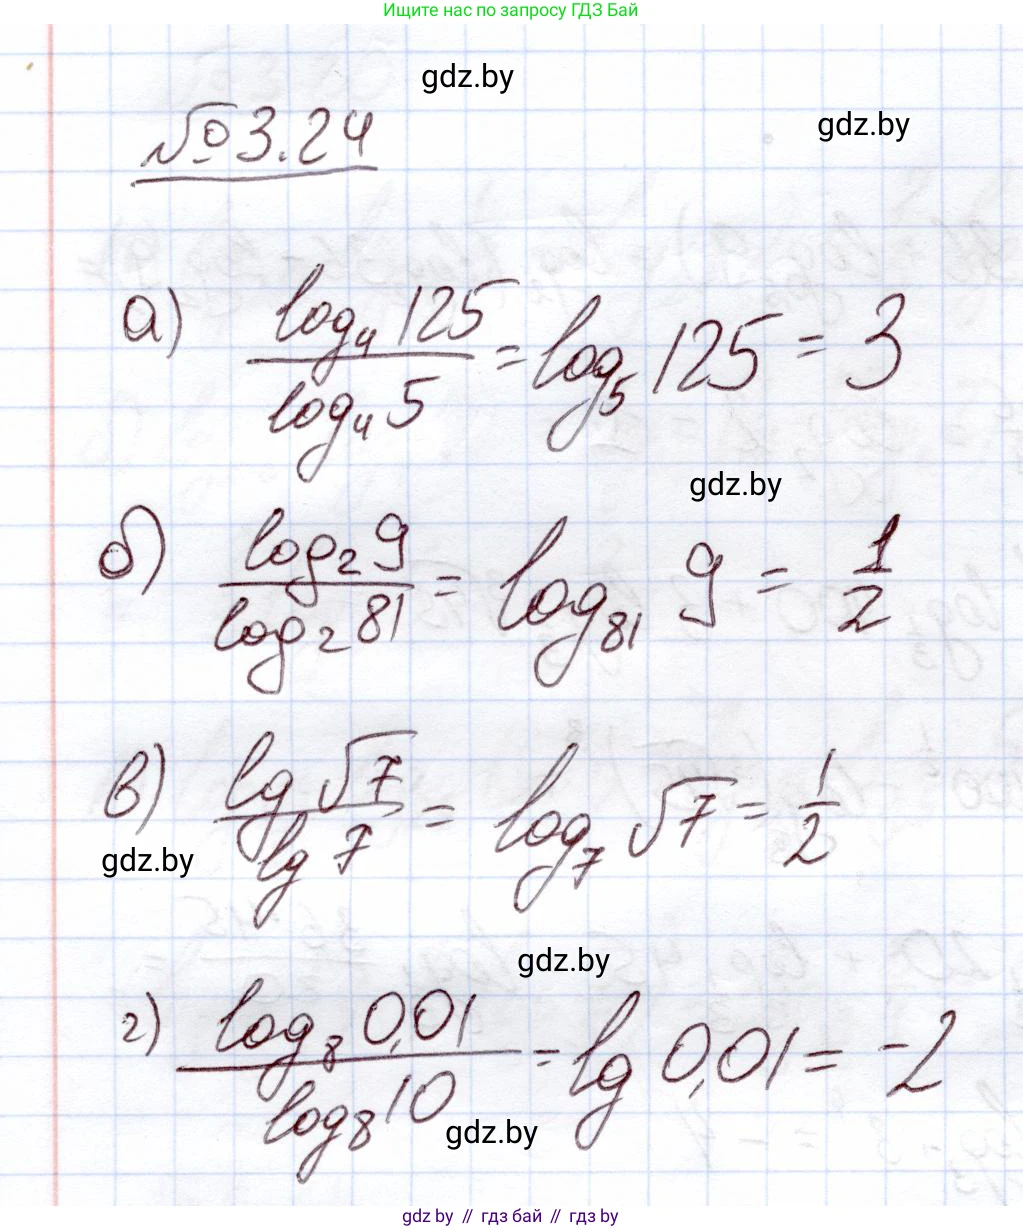 Ищите нас по запросу ГДЗ Бай
gdz.by
gdz.by
№3.24
а) log₄ 125 / log₄ 5 = log₅ 125 = 3
gdz.by
б) log₂ 9 / log₂ 81 = log₈₁ 9 = 1/2
в) lg √7 / lg 7 = log₇ √7 = 1/2
gdz.by
gdz.by
г) log₈ 0,01 / log₈ 10 = lg 0,01 = -2
gdz.by
gdz.by // гдз бай // gdz.by